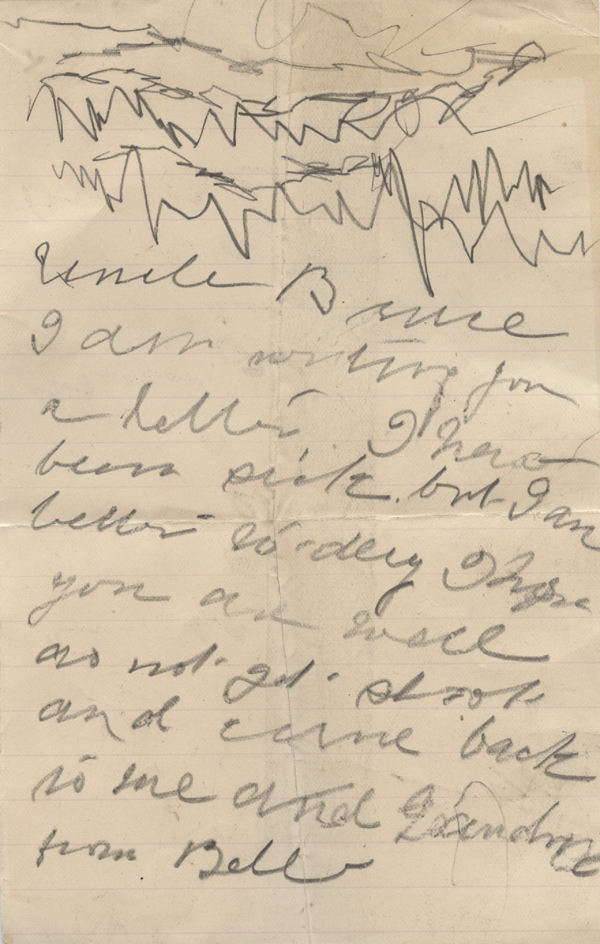 Uncle Bruce
I am writing you
a letter. I have
been sick. but I am
better to-day I hope
you are well
do not get shoot
and come back
to me and Grandma
from Bell